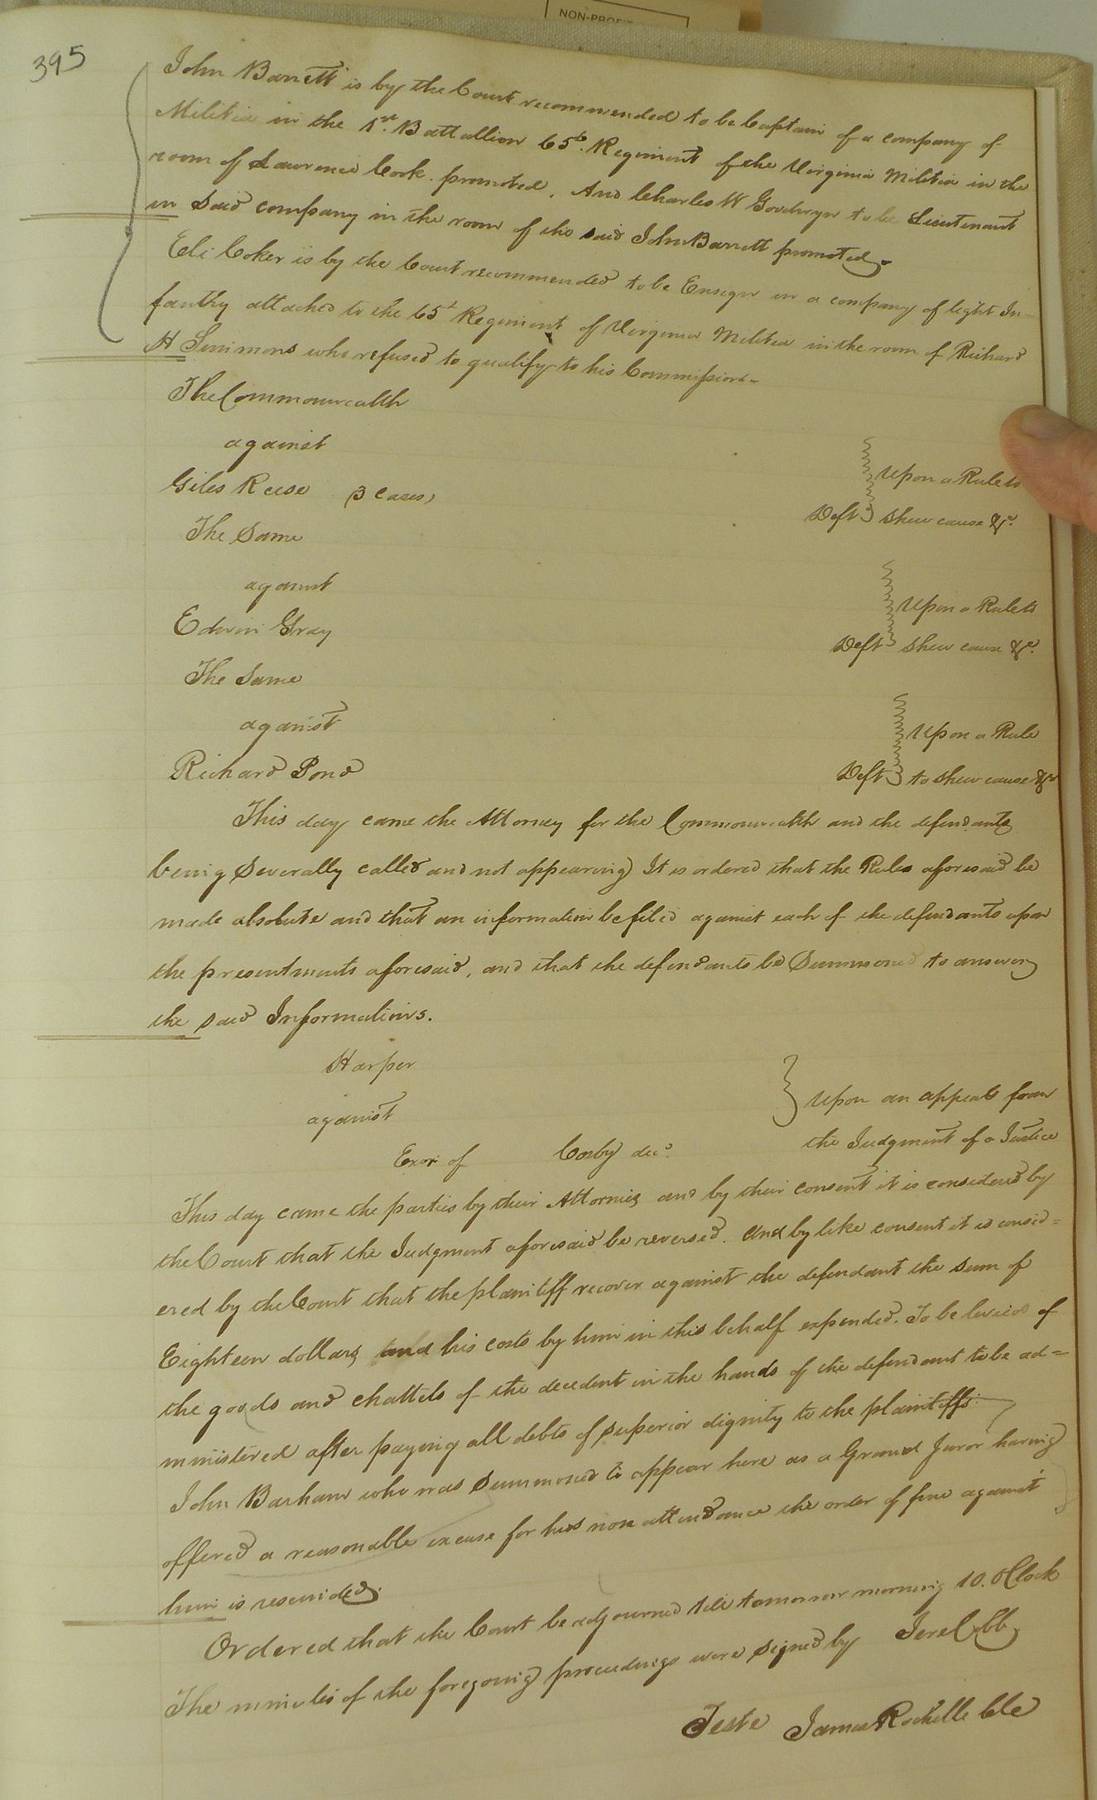 NON-PROFIT
395
John Barrett is by the Court recommended to be Captain of a company of
Militia in the 1st. Battallion 65th. Regiment of the Virginia Militia in the
room of Lawrence Cook promoted. And Charles W Goodwyn to be Lieutenant
in said company in the room of the said John Barrett promoted.
Eli Coker is by the Court recommended to be Ensign in a company of light In-
fantry attached to the 65t Regiment of Virginia Militia in the room of Richard
H Simmons who refused to qualify to his Commission.
The Commonwealth
against
Giles Reese (3 Cases) Deft
Upon a Rule to
shew cause &c.
The Same
against
Edwin Gray Deft
Upon a Rule to
shew cause &c.
The Same
against
Richard Pond Deft
Upon a Rule
to shew cause &c
This day came the Attorney for the Commonwealth and the defendants
being severally called and not appearing) It is ordered that the Rules aforesaid be
made absolute and that an information be filed against each of the defendants upon
the presentments aforesaid, and that the defendants be Summoned to answer
the said Informations.
Harper
against
Exor of Cosby dec.
Upon an appeal from
the Judgment of a Justice
This day came the parties by their Attornies and by their consent it is considered by
the Court that the Judgment aforesaid be reversed. And by like consent it is consid=
ered by the Court that the plaintiff recover against the defendant the sum of
Eighteen dollars and his costs by him in this behalf expended. To be levied of
the goods and chattels of the decedent in the hands of the defendant to be ad=
ministered after paying all debts of superior dignity to the plaintiffs.
John Barham who was summoned to appear here as a Grand Juror having
offered a reasonable excuse for his non attendance the order of fine against
him is rescinded.
Ordered that the Court be adjourned till tomorrow morning 10. OClock
The minutes of the foregoing proceedings were signed by Jere Cobb
Teste James Rochelle Cle